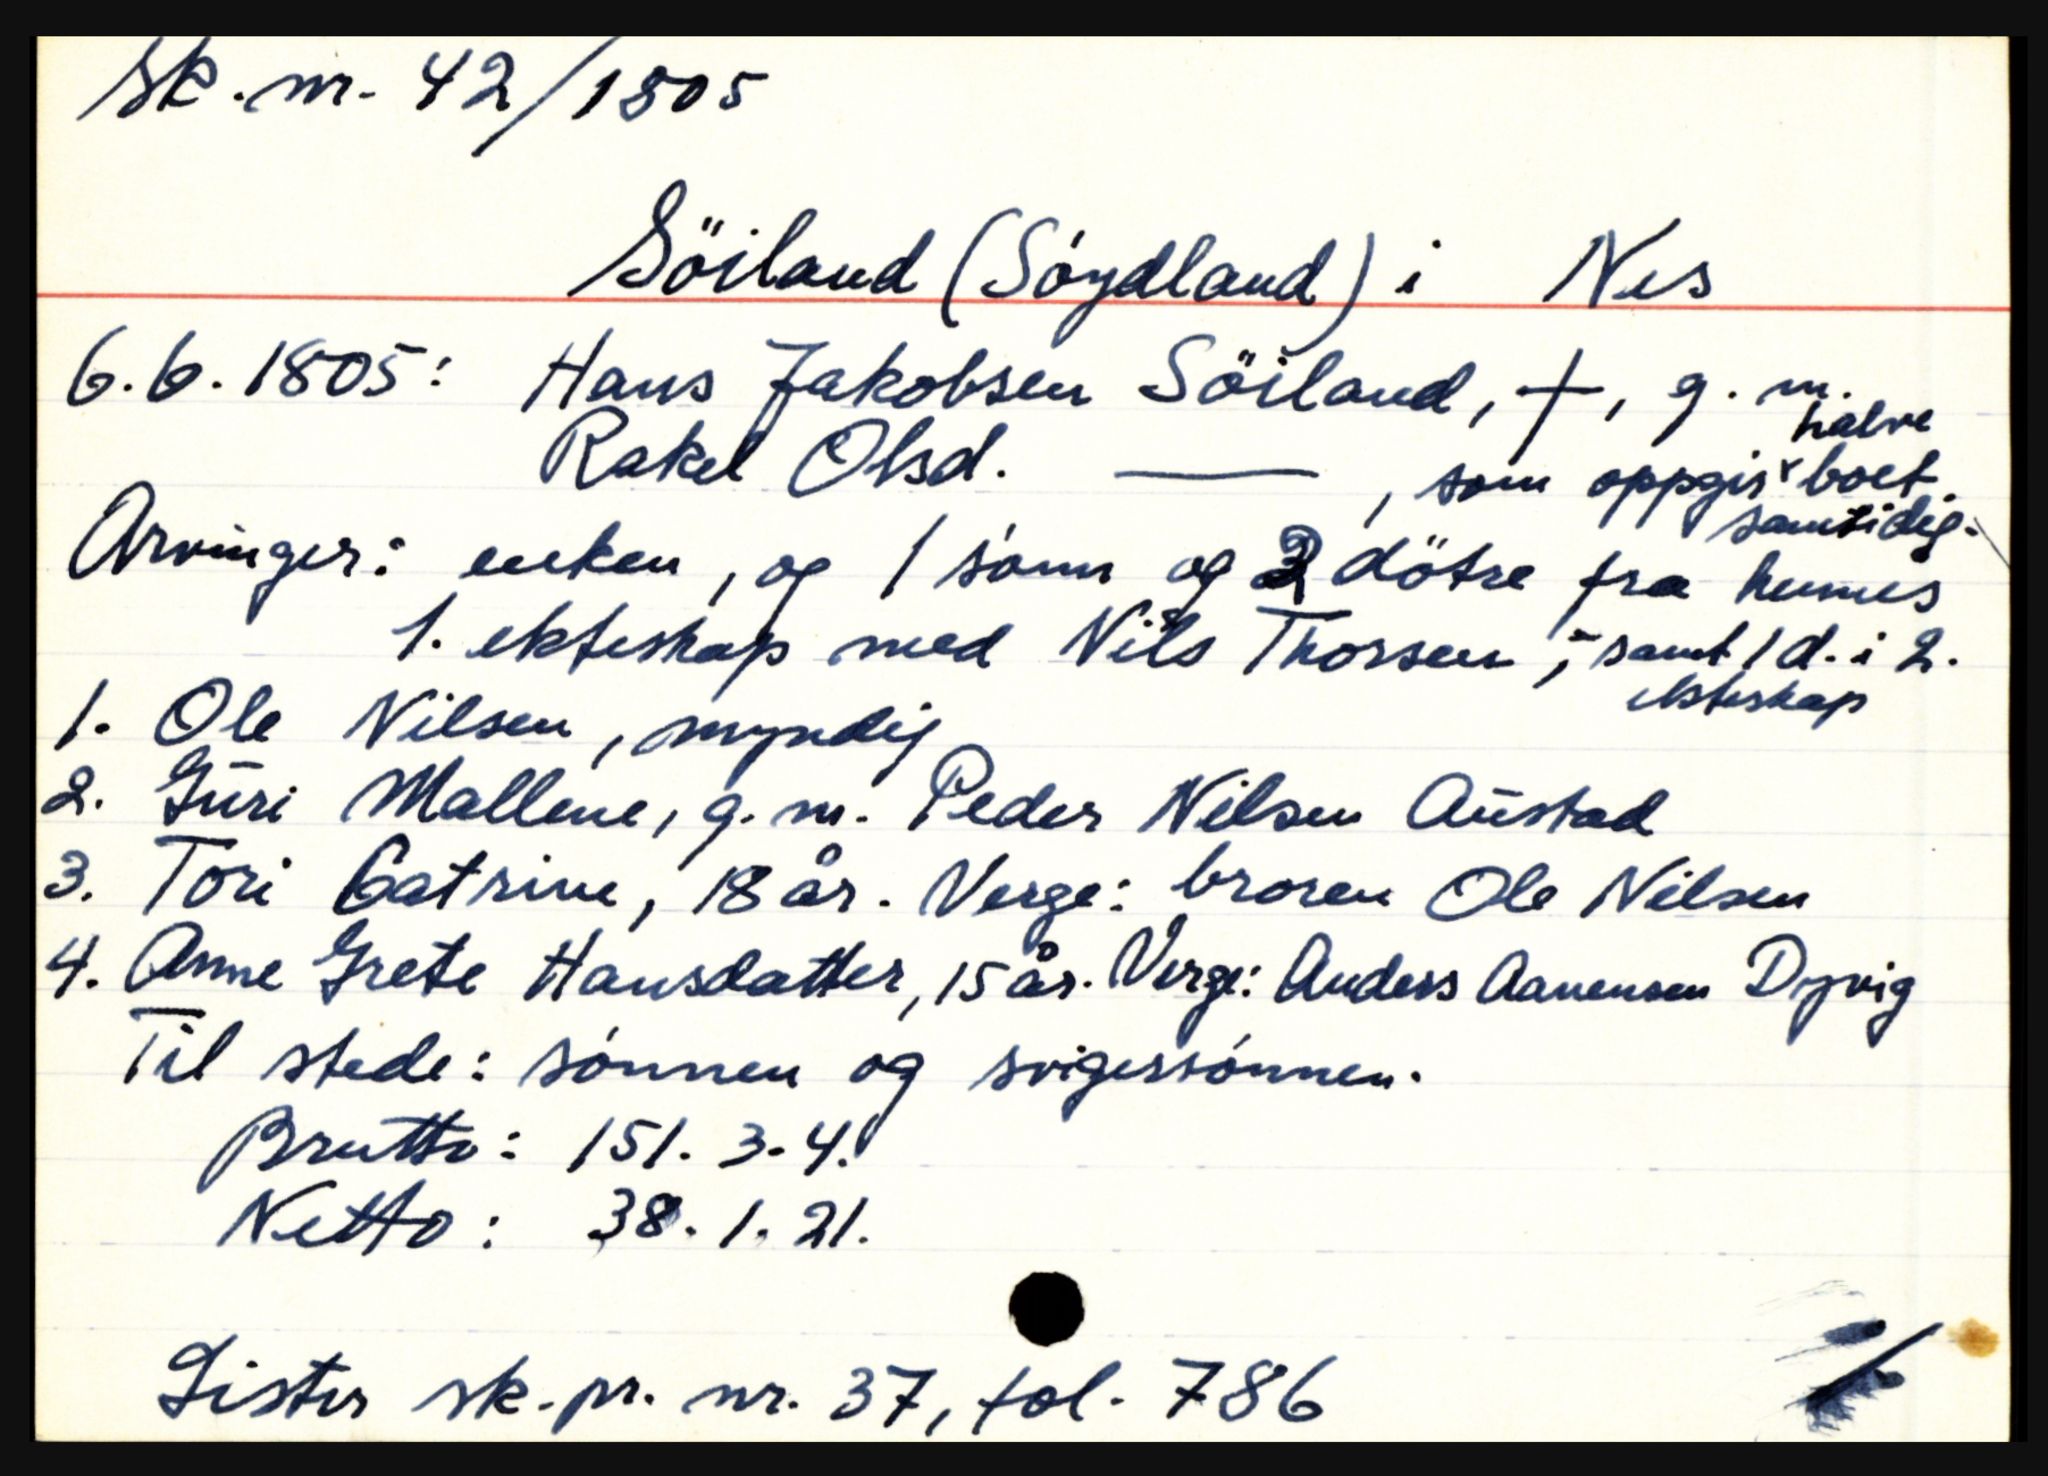 Sk. nr. 42/1805
Söiland (Sóydland) i Nes
6.6.1805: Hans Jakobsen Söiland, †, g. m.
Rakel Olsd. —— , som oppgir halve boet
samtidig.
Arvinger: enken, og 1 sónn og 2 dötre fra hennes
1. ekteskap med Nils Thorsen, samt 1 d. i 2.
ekteskap
1. Ole Nilsen, myndig
2. Guri Mallene, g. m. Peder Nilsen Austad
3. Tori Catrine, 18 år. Verge: broren Ole Nilsen
4. Anne Grete Hansdatter, 15 år. Verge: Anders Aanensen Dyvig
Til stede: sónnen og svigersónnen.
Brutto: 151. 3. 4.
Netto: 38. 1. 21.
Lister sk. pr. nr. 37, fol. 786